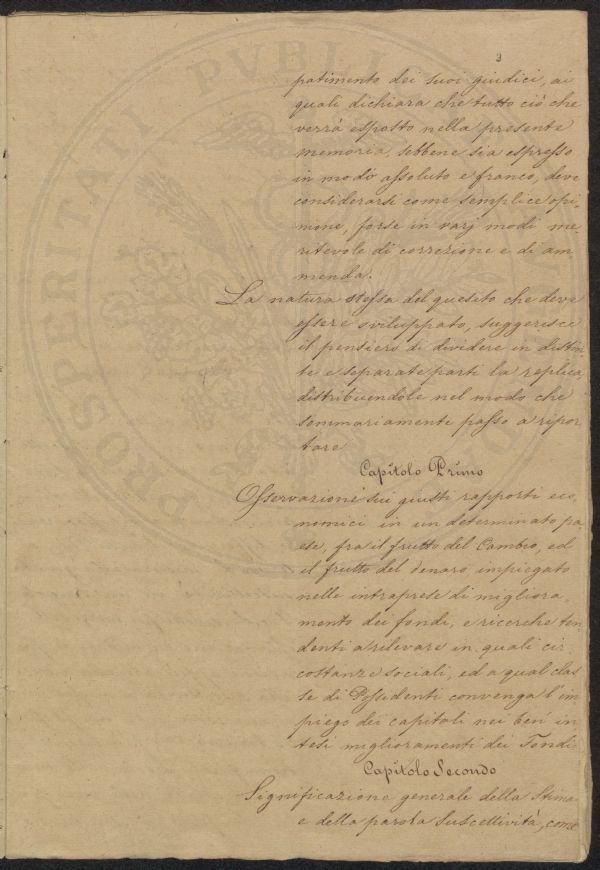 3
patimento dei suoi giudici, ai
quali dichiara che tutto ciò che
verrà esposto nella presente
memoria, sebbene sia espresso
in modo assoluto e franco, deve
considerarsi come semplice opi-
nione, forse in varj modi me-
ritevole di correzione e di am
menda.
La natura stessa del quesito che deve
essere sviluppato, suggerisce
il pensiero di dividere in distin-
te e separate parti la replica,
distribuendole nel modo che
sommariamente passo a ripor
tare
Capitolo Primo
Osservazione sui giusti rapporti eco
nomici in un determinato pa
ese, fra il frutto del Cambio, ed
il frutto del denaro impiegato
nelle intraprese di migliora-
mento dei fondi, e ricerche ten
denti a rilevare in quali cir
costanze sociali, ed a qual clas
se di Possidenti convenga l'im
piego dei capitoli nei ben in
tesi miglioramenti dei Fondi
Capitolo Secondo
Significazione generale della Stima
e della parola Suscettività, come
PROSPERITATI PVBLI